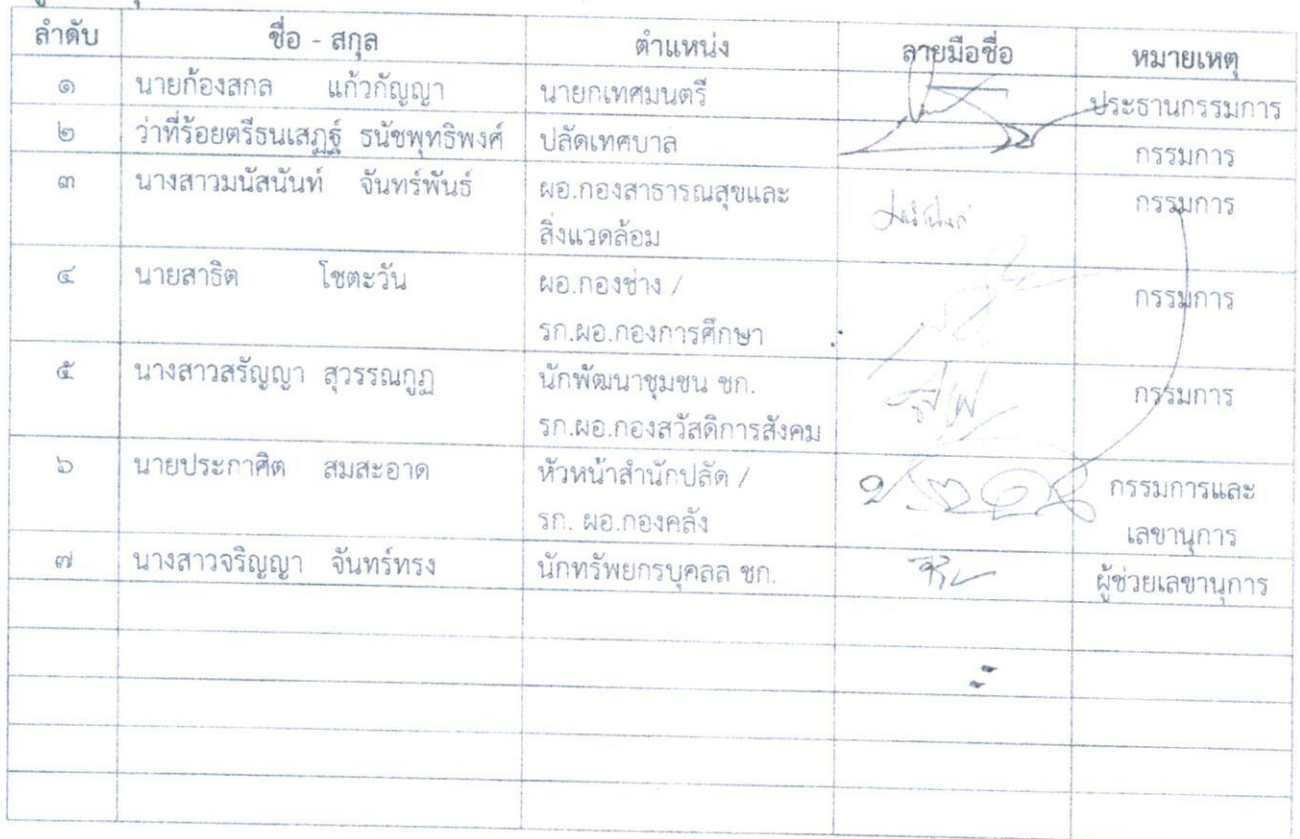 ลำดับ ชื่อ - สกุล ตำแหน่ง ลายมือชื่อ หมายเหตุ
๑ นายก้องสกล แก้วกัญญา นายกเทศมนตรี ประธานกรรมการ
๒ ว่าที่ร้อยตรีธนเสฏฐ์ ธนัชพุทธิพงศ์ ปลัดเทศบาล กรรมการ
๓ นางสาวมนัสนันท์ จันทร์พันธ์ ผอ.กองสาธารณสุขและ กรรมการ
สิ่งแวดล้อม
๔ นายสาธิต โชตะวัน ผอ.กองช่าง / กรรมการ
รก.ผอ.กองการศึกษา
๕ นางสาวสรัญญา สุวรรณกูฏ นักพัฒนาชุมชน ชก. กรรมการ
รก.ผอ.กองสวัสดิการสังคม
๖ นายประกาศิต สมสะอาด หัวหน้าสำนักปลัด / กรรมการและ
รก. ผอ.กองคลัง เลขานุการ
๗ นางสาวจริญญา จันทร์ทรง นักทรัพยกรบุคลล ชก. ผู้ช่วยเลขานุการ